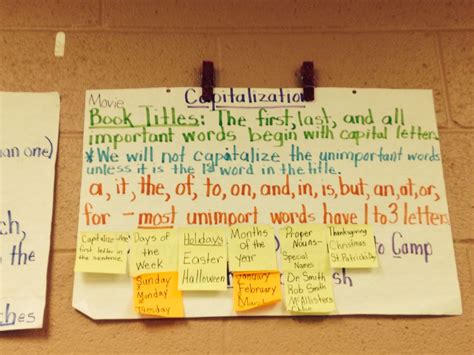 Movie
Capitalization
Book Titles: The first, last, and all
important words begin with capital letters
*We will not capitalize the unimportant words
unless it is the 1st word in the title.
a, it, the, of, to, on, and, in, is, but, an, at, or,
for - most unimport words have 1 to 3 letters
Capitalize the
first letter in
the sentence.
Days of
the
Week
Sunday
Monday
Tuesday
Holidays
Easter
Halloween
Months
of the
year
January
February
March
Proper
Nouns-
Special
Names
Dr Smith
Rob Smith
McAllisters
Thanksgiving
Christmas
St Patrick's Day
to Camp
than one)
ch,
ches